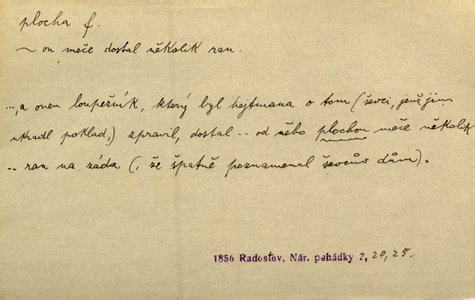 plocha f.
~ou meče dostal několik ran.
..., a onen loupežník, který byl hejtmana o tom (ševci, jenž jim
ukradl poklad,) zpravil, dostal -- od něho plochou meče několik
-- ran na záda (, že špatně poznamenal ševcův dům).
1856 Radostov, Nár. pohádky 2, 20, 25.